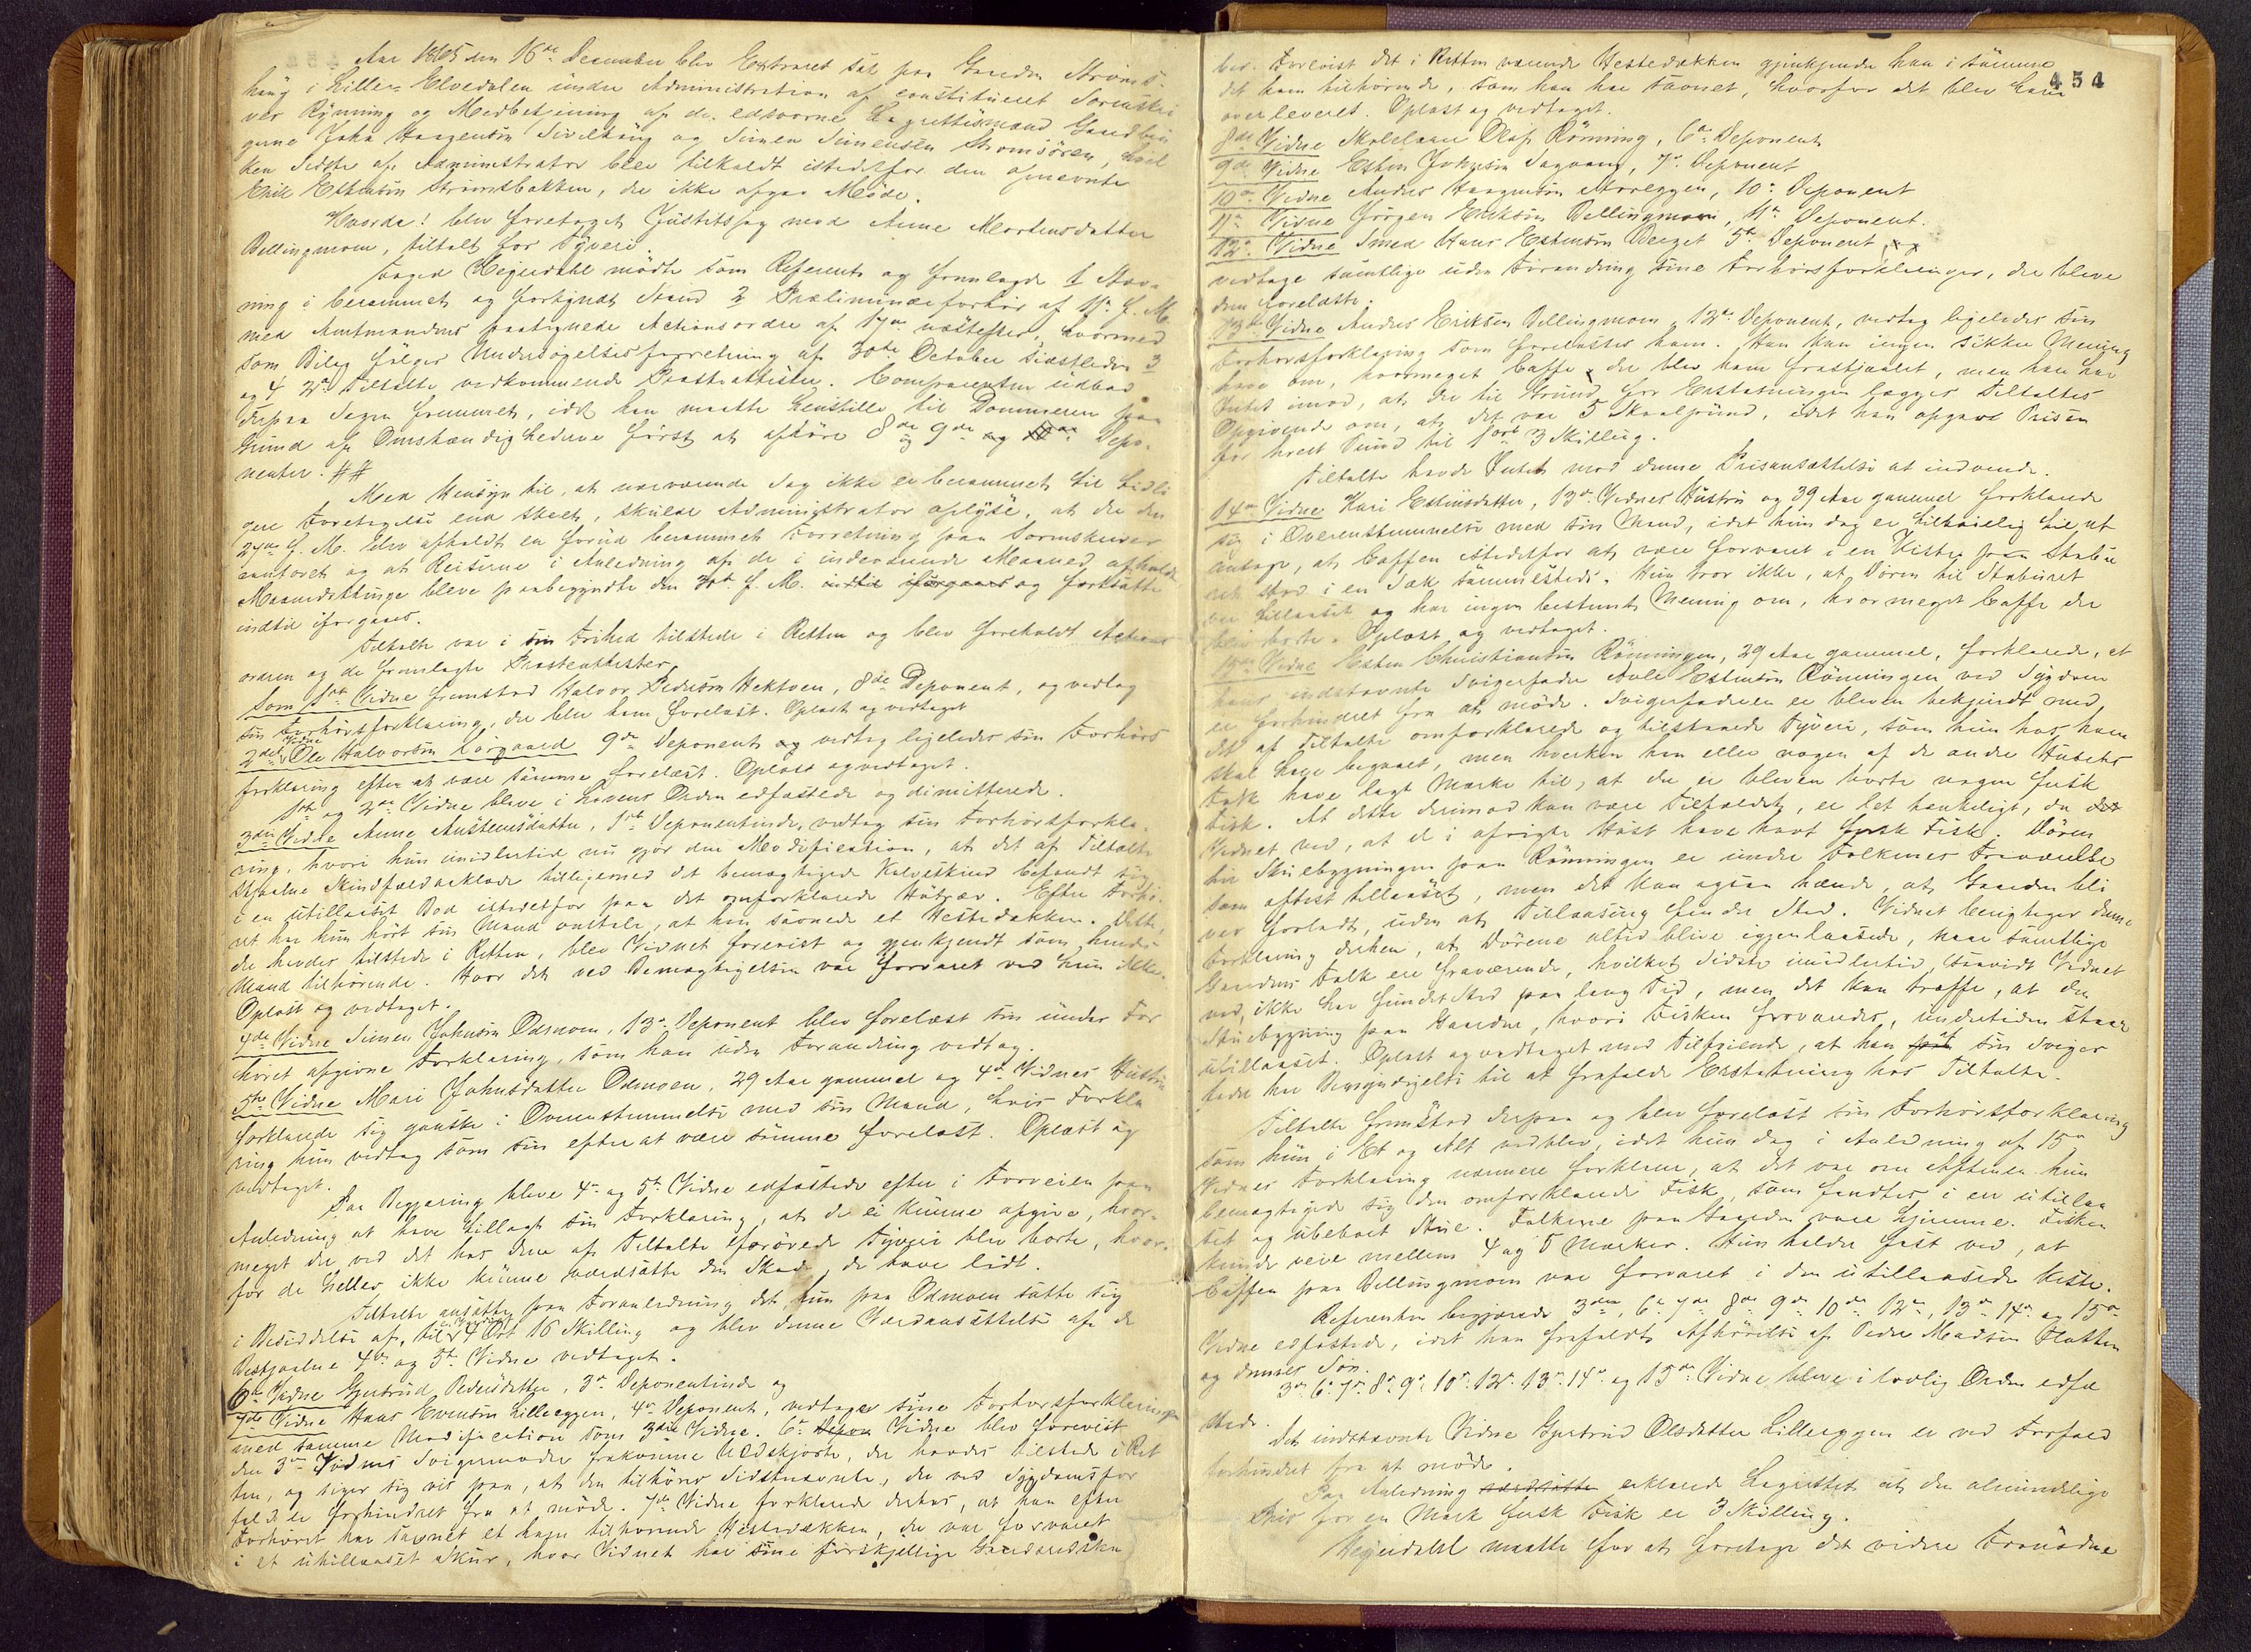 Aar 1865 den 16de December blev Extraret sat paa Gaarden Strøms-
haug i Lille-Elvedalen under Administration af constitueret Sorenskri
ver Rynning og Medbetjening af de edsvorne Lagrettismænd Gaardbru
gerne John Haagensen Sivilhaug og Simen Simensen Strømsøren, hvil
ken Sidste af Administrator blev tilkaldt istedetfor den opnevnte
Erik Estensøn Strømsbakken, der ikke afgav Møde.
Hvorda! blev foretaget Justitssag mod Anne Mortensdatter
Bellingmoen, tiltalt for Tyveri.
Foged Hejerdahl mødte som Referent og fremlagde 1 Stæv-
ning i berammet og forkyndt Stand 2 Præliminærforhør af 11te f. M.
med Amtmandens paategnede Actionsordre af 17de næstefter, hvormed
som Bilag følger Undersøgelsesforretning af 30te October sidstleden 3
og 4 2de Tiltalte vedkommende Præsteattester. Comparenten udbad
derpaa Sagen fremmet, idet han maatte henstille til Dommeren paa
Grund af Omstændighederne først at afhøre 8de og 9de Depo-
nenter. ##
Med Hensyn til, at nærværende Sag ikke er berammet til tidli
gere Foretagelse end skeet, skulde Administrator oplyse, at der den
27de f. M. blev afholdt en forud berammet Forretning paa Sorenskriver
contoret og at Reiserne i Anledning af de i indeværende Maaned afholdte
Maanedsthinge bleve paabegyndte den 30te f. M. og fortsatte
indtil iforgaars.
Tiltalte var i sin Frihed tilstede i Retten og blev foreholdt Actions
ordren og de fremlagte Præsteattester.
Som 1ste Vidne fremstod Halvor Pedersøn Hektoen, 8de Deponent, og vedtog
sin Forhørsforklaring, der blev ham forelæst. Oplæst og vedtaget
2det Vidne Ole Halvorsøn Lørgaard 9de Deponent vedtog ligeledes sin Forhørs
forklaring efter at være samme forelæst. Oplæst og vedtaget.
1ste og 2det Vidne bleve i Lovens Orden edfæstede og dimitterede.
3die Vidne Anne Austensdatter, 1ste Deponentinde, vedtog sin Forhørsforkla-
ring, hvori hun imidlertid nu gjør den Modification, at det af Tiltalte
stjaalne Skindfeldaaklæde tilligemed det bemægtigede Kalveskind befandt sig
i en utillaaset Bod istedetfor paa det omforklarede . Efter Forhø-
ret har hun hørt sin Mand omtale, at han savnede et Hestedækken. Dette,
der havdes tilstede i Retten, blev Vidnet forevist og gjenkjendt som hendes
Mand tilhørende. Hvor det ved Bemægtigelsen var forvaret ved hun ikke.
Oplæst og vedtaget.
4de Vidne Simen Johnsøn Odmoen, 13de Deponent blev forelæst sin under For
høret afgivne Forklaring, som han uden Forandring vedtog.
5te Vidne Mari Johnsdatter Odmoen, 29 Aar gammel og 4de Vidnes Hustru
forklarede sig ganske i Overensstemmelse med sin Mand, hvis Forkla
ring hun vedtog som sin efter at være samme forelæst. Oplæst og
vedtaget.
Paa Begjæring bleve 4de og 5te Vidne edfæstede efter i Forveien paa
Anledning at have tillagt sin Forklaring, at de ei kunne opgive, hvor-
meget der ved det hos dem af Tiltalte forøvede Tyveri blev borte, hvor-
for de heller ikke kunne værdsætte den Skade, de have lidt.
Tiltalte ansatte paa Foranledning det, hun paa Odmoen satte sig
i Besiddelse af, til en Værdi af 4 Ort 16 Skilling og blev denne Værdiansættelse af de
Bestjaalne 4de og 5te Vidne vedtaget.
6te Vidne Gjertrud Pedersdatter, 3de Deponentinde og
7de Vidne Hans Evensøn Lilleeggen, 4de Deponent, vedtager sine Forhørsforklaringer
med samme Modification som 3die Vidne. 6te Vidne blev forevist
den 3die Vidnes Svigermoder frakomne Uldskjorte, der havdes tilstede i Ret
ten, og siger sig vis paa, at den tilhører Sidstnævnte, der ved Sygdomsfor
fald er forhindret fra at møde. 7de Vidne forklarede derhos, at han efter
Forhøret har savnet et ham tilhørende Hestedækken, der var forvaret
i et utillaaset Skur, hvor Vidnet har sine forskjellige Gaardsredska
454
ber. Forevist det i Retten værende Hestedækken gjenkjender han i samme
det ham tilhørende, som han har savnet, hvorfor det blev ham
overleveret. Oplæst og vedtaget.
8de Vidne Skolelærer Olaf Rønning, 6te Deponent
9de Vidne Esten Johnsøn Sagvang, 7de Deponent
10de Vidne Anders Haagensøn Storeggen, 10de Deponent
11te Vidne Jørgen Eriksøn Bellingmoen, 11te Deponent.
12te Vidne Smed Hans Estensøn Berget 5te Deponent
vedtage samtlige uden Forandring sine Forhørsforklaringer, der bleve
dem forelæste.
13de Vidne Anders Eriksen Bellingmoen, 12te Deponent, vedtog ligeledes sin
Forhørsforklaring som forelæstes ham. Han kan ingen sikker Mening
have om, hvormeget Caffe der blev ham frastjaalet, men han har
Intet imod, at der til Grund for Erstatningen lægges Tiltaltes
Opgivende om, at det var 5 Skaalpund, idet han opgav Prisen
for hvert Pund til 1 ort 3 Skilling.
Tiltalte havde Intet mod denne Prisansættelse at indvende.
14de Vidne Kari Estensdatter, 13de Vidnes Hustru og 39 Aar gammel forklarede
sig i Overensstemmelse med sin Mand, idet hun dog er tilbøielig til at
antage, at Caffen istedetfor at være forvaret i en Kiste paa Stabu
ret stod i en Sæk sammesteds. Hun tror ikke, at Døren til Staburet
var tillaaset og har ingen bestemt Mening om, hvormeget Caffe der
blev borte. Oplæst og vedtaget.
15de Vidne Esten Christiansøn Rønningen, 29 Aar gammel, forklarede, at
hans indstævnte Svigerfader Estensøn Rønningen ved Sygdom
er forhindret fra at møde. Svigerfaderen er bleven bekjendt med
det af Tiltalte omforklarede og tilstaaede Tyveri, som hun hos ham
skal have begaaet, men hverken han eller nogen af de andre Husets
Folk have lagt Mærke til, at der er bleven borte nogen fersk
Fisk. At dette derimod kan være Tilfældet, er let tænkeligt, da
Vidnet ved, at de i afvigte Høst have havt fersk Fisk. Døren
til Stuebygningen paa Rønningen er under Folkenes Fraværelse
som oftest tillaaset, men det kan ogsaa hænde, at Gaarden bli
ver forladt, uden at Tillaasing finder Sted. Vidnet berigtiger denne
Forklaring derhen, at Dørene altid blive igjenlaasede, naar samtlige
Gaardens Folk ere fraværende, hvilket Sidste imidlertid, saavidt Vidnet
ved, ikke har fundet Sted paa lang Tid, men det kan træffe, at den
Stuebygning paa Gaarden, hvori Fisken forvaredes, undertiden staar
utillaaset. Oplæst og vedtaget med Tilføiende, at han sin Sviger
fader har Bemyndigelse til at frafalde Erstatning hos Tiltalte.
Tiltalte fremstod derpaa og blev forelæst sin Forhørsforklaring
som hun i Et og Alt vedblev, idet hun dog i Anledning af 15de
Vidnes Forklaring nærmere forklarer, at det var om Aftenen hun
bemægtigede sig den omforklarede Fisk, som fandtes i en utillaa
set og ubeboet Stue. Folkene paa Gaarden vare hjemme. Fisken
kunde veie mellem 4 og 5 Marker. Hun holder fast ved, at
Caffen paa Bellingmoen var forvaret i den utillaasede Kiste.
Referenten begjærede 3die, 6te 7de 8de 9de 10de 12te, 13de 14de og 15de
Vidne edfæstede, idet han frafaldt Afhørelse af Peder Madsøn Flatten
og dennes Søn.
3die 6te 7de 8de 9de 10de 12te 13de 14de og 15de Vidne bleve i lovlig Orden edfæ
stede.
Det indstævnte Vidne Gjertrud Olsdatter Lilleeggen er ved Forfald
forhindret fra at møde.
Paa Anledning erklærede Lagrettet at den almindelige
Pris for en Mark fersk Fisk er 3 Skilling.
Hejerdahl maatte for at foretage det videre Fornødne